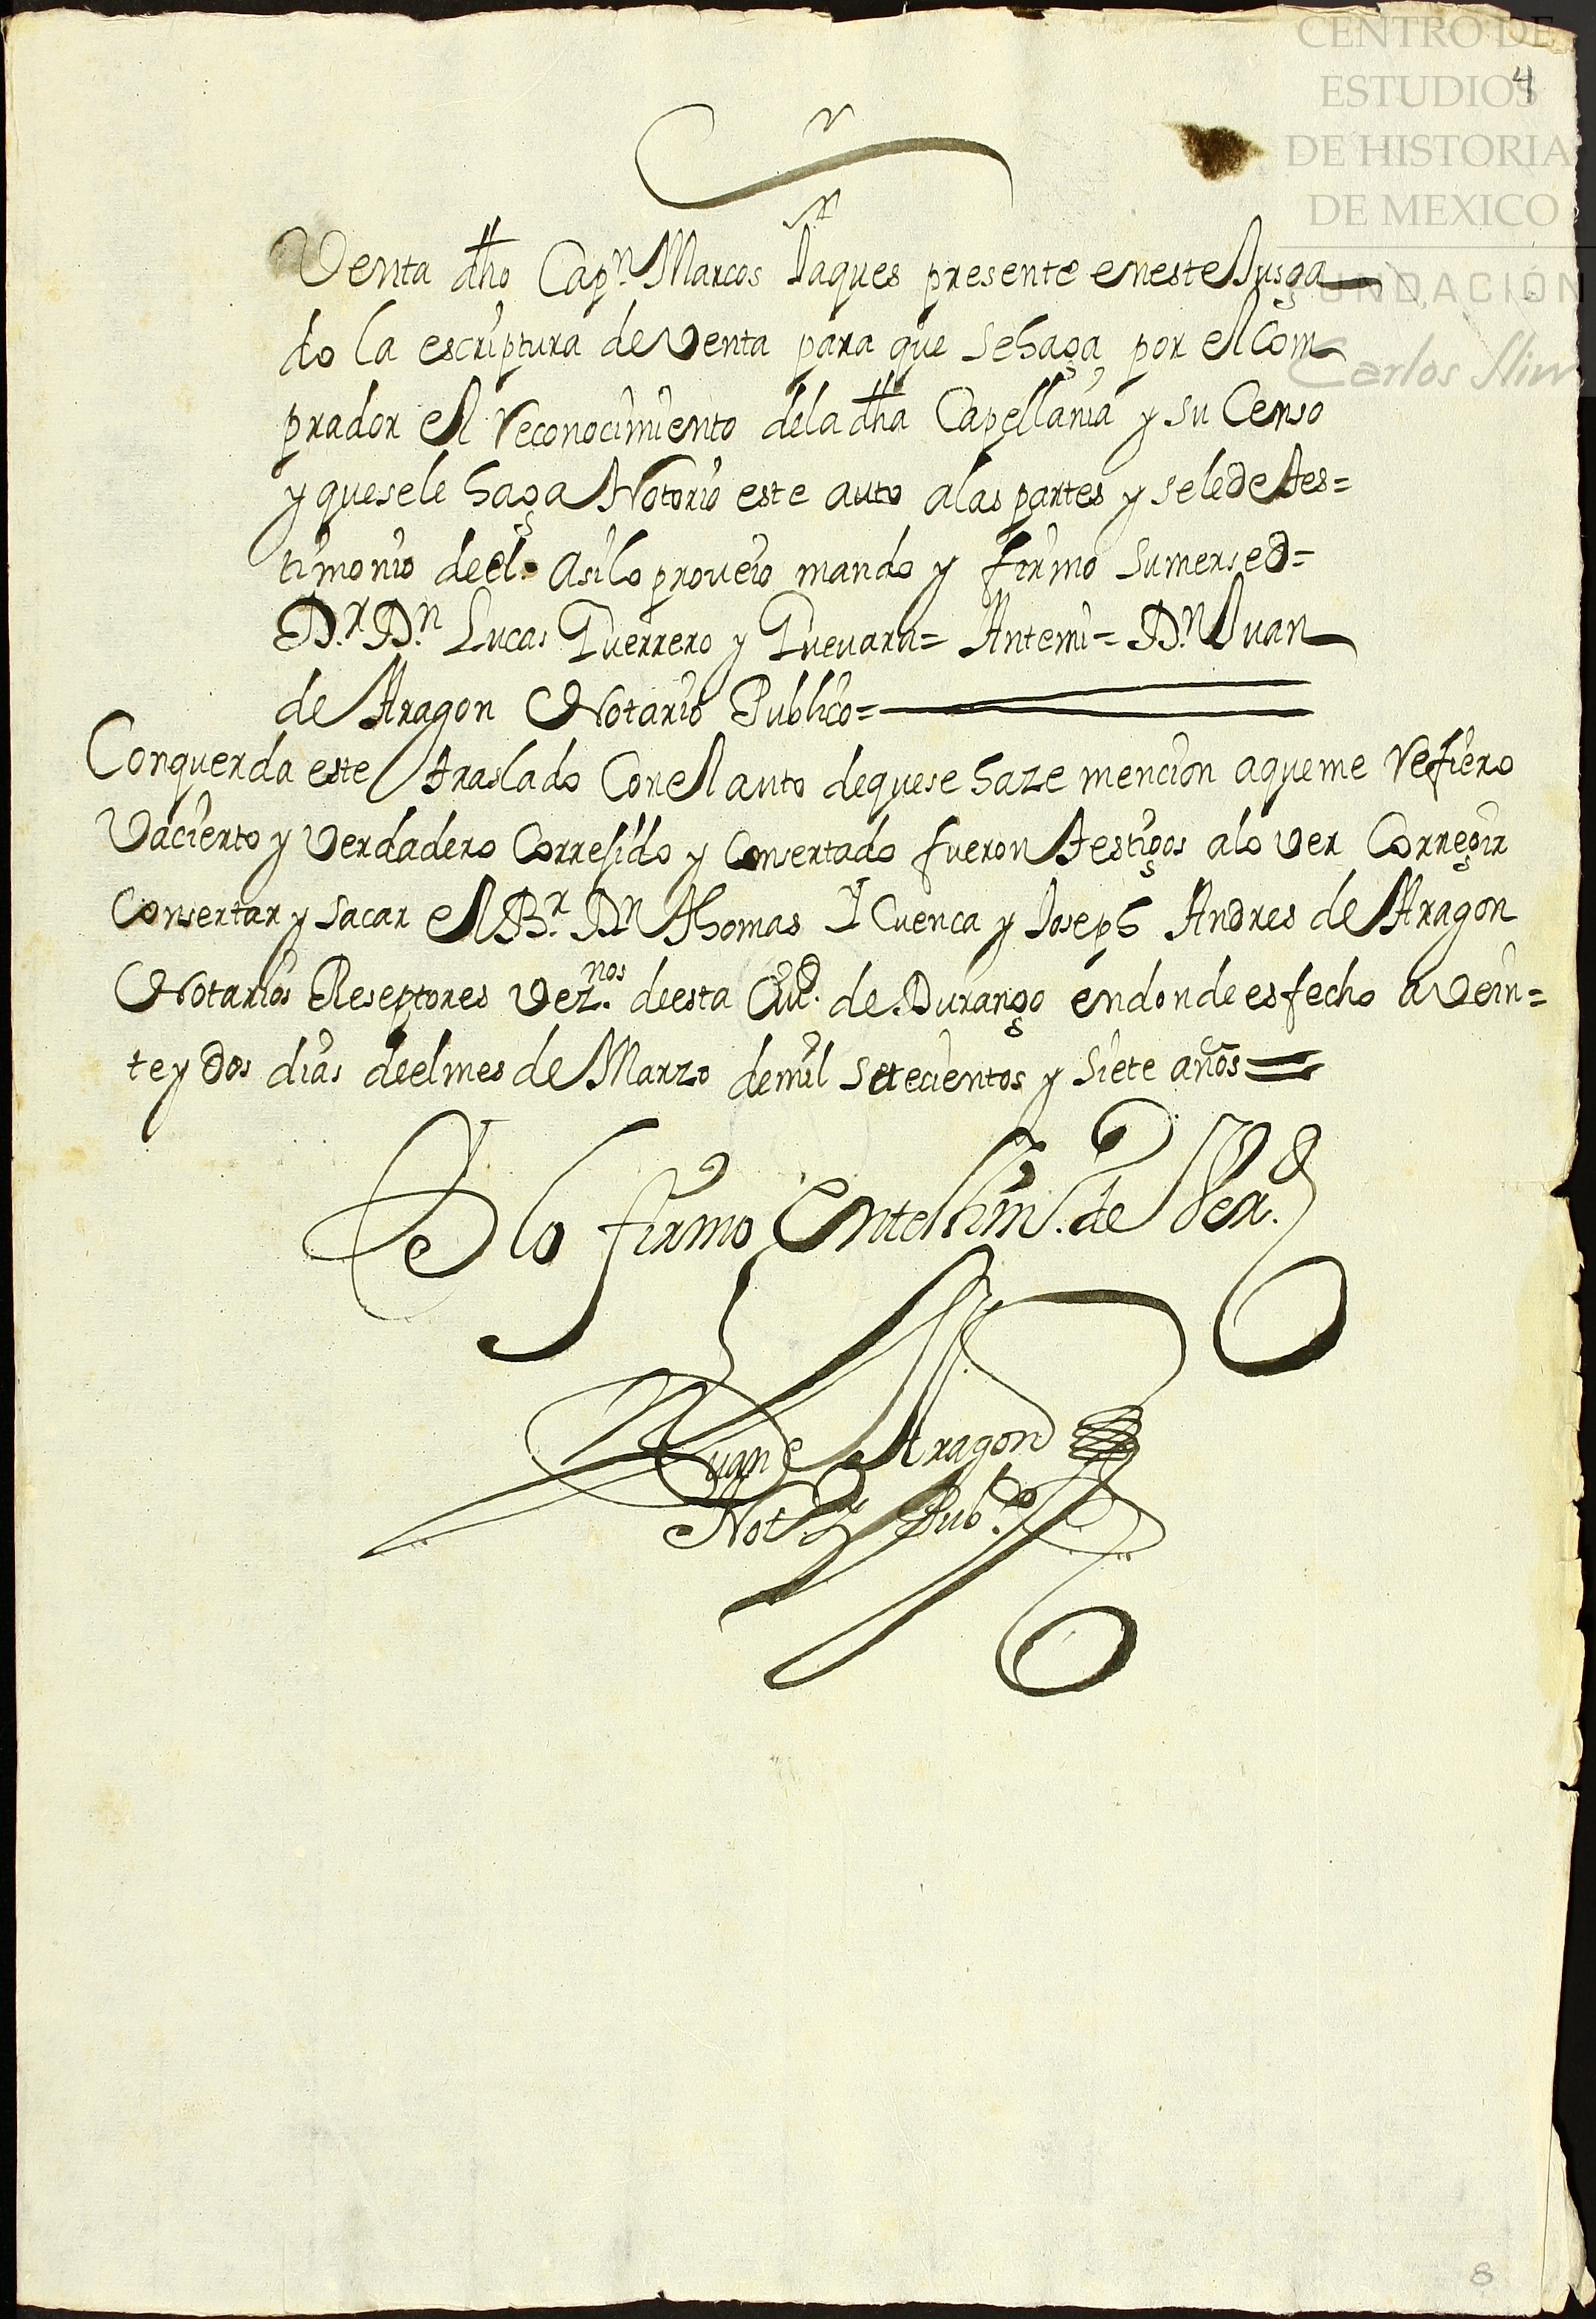 CENTRO DE
ESTUDIOS
DE HISTORIA
DE MEXICO
FUNDACIÓN
Carlos Slim
4
Venta dho Capn. Marcos Jaques presente eneste Jusga
do la escriptura de Venta para que se haga por el Com
prador el Reconocimiento dela dha Capellania y su Censo
y quesele haga Notorio este auto alas partes y selede tes=
timonio deel. asilo proveio mando y firmo sumersed=
Dr. Dn. Lucas Guerrero y Guevara= Antemi= Dn. Juan
de Aragon Notario Publico=
Conquerda este traslado Conel auto dequese haze mencion aqueme Refiero
Va cierto y Verdadero Corresido y Consertado fueron testigos alo ver Corregir
Consertar y sacar el Br. Dn Thomas Y Cuenca y Joseph Andres de Aragon
Notarios Reseptores Vez.nos deesta Ciud. de Durango endonde es fecho a Vein=
te y dos dias deelmes de Marzo demil setecientos y siete años=
lo firmo En testim.o de Verd.
Juan de Aragon
Not.o Pub.co
8